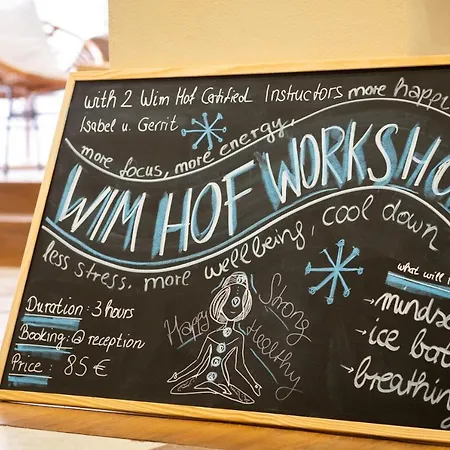 with 2 Wim Hof Certified Instructors
Isabel u. Gerrit
more focus, more energy, more happ
WIM HOF WORKSHO
less stress, more wellbeing, cool down
Duration: 3 hours
Booking: @ reception
Price: 85 €
Happy
Strong
Healthy
what will
→ mindse
→ ice bat
→ breathing